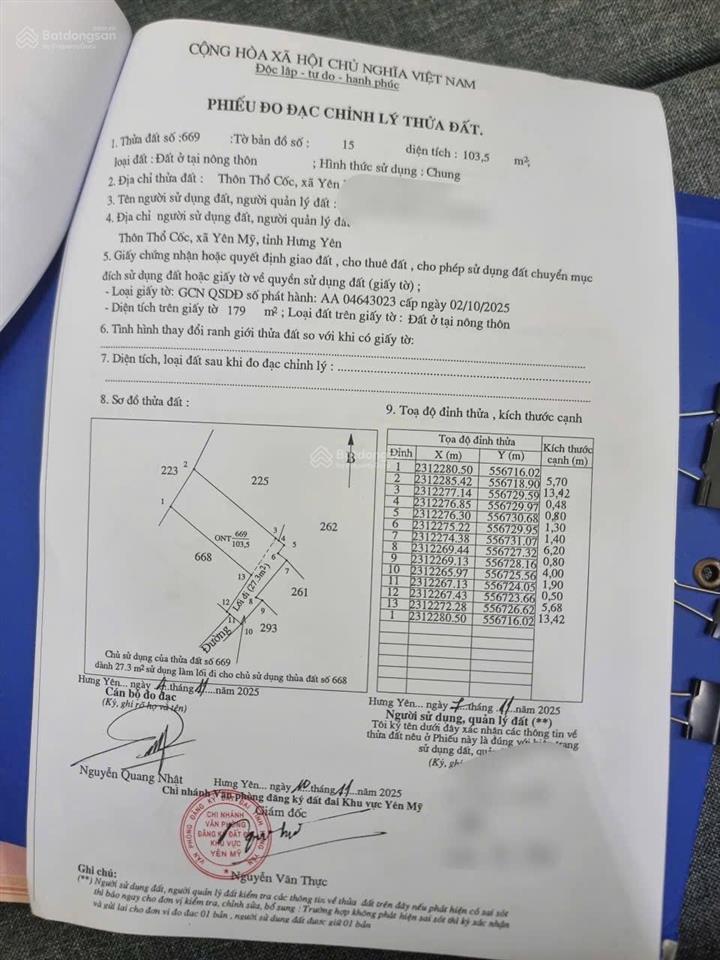 Batdongsan
by PropertyGuru
CỘNG HÒA XÃ HỘI CHỦ NGHĨA VIỆT NAM
Độc lập - tự do - hạnh phúc
PHIẾU ĐO ĐẠC CHỈNH LÝ THỬA ĐẤT.
1. Thửa đất số :669 :Tờ bản đồ số : 15 diện tích : 103,5 m²;
loại đất : Đất ở tại nông thôn ; Hình thức sử dụng : Chung
2. Địa chỉ thửa đất : Thôn Thổ Cốc, xã Yên
3. Tên người sử dụng đất, người quản lý đất :
4. Địa chỉ người sử dụng đất, người quản lý
Thôn Thổ Cốc, xã Yên Mỹ, tỉnh Hưng Yên
5. Giấy chứng nhận hoặc quyết định giao đất , cho thuê đất , cho phép sử dụng đất chuyển mục
đích sử dụng đất hoặc giấy tờ về quyền sử dụng đất (giấy tờ) ;
- Loại giấy tờ: GCN QSDĐ số phát hành: AA 04643023 cấp ngày 02/10/2025
- Diện tích trên giấy tờ 179 m² ; Loại đất trên giấy tờ : Đất ở tại nông thôn
6. Tình hình thay đổi ranh giới thửa đất so với khi có giấy tờ:
7. Diện tích, loại đất sau khi đo đạc chỉnh lý :
8. Sơ đồ thửa đất :
223
2
225
B
1
262
3
4
5
ONT 669
103,5
6
7
668
13
Lối đi (27.3m²)
261
12
8
9
11
10
293
Đường
Chủ sử dụng của thửa đất số 669
dành 27.3 m² sử dụng làm lối đi cho chủ sử dụng thửa đất số 668
9. Toạ độ đỉnh thửa , kích thước cạnh
Tọa độ đỉnh thửa
Kích thước cạnh (m)
Đỉnh X (m) Y (m)
1 2312280.50 556716.02
5,70
2 2312285.42 556718.90
13,42
3 2312277.14 556729.59
0,48
4 2312276.85 556729.97
0,80
5 2312276.30 556730.68
1,30
6 2312275.22 556729.95
1,40
7 2312274.38 556731.07
6,20
8 2312269.44 556727.32
0,80
9 2312269.13 556728.16
4,00
10 2312265.97 556725.56
1,90
11 2312267.13 556724.05
0,50
12 2312267.43 556723.66
5,68
13 2312272.28 556726.62
13,42
1 2312280.50 556716.02
Hưng Yên... ngày 4 tháng 11 năm 2025
Cán bộ đo đạc
(Ký, ghi rõ họ và tên)
Nguyễn Quang Nhật
Hưng Yên... ngày 7 tháng 11 năm 2025
Người sử dụng, quản lý đất (**)
Tôi ký tên dưới đây xác nhận các thông tin về
thửa đất nêu ở Phiếu này là đúng với trạng
sử dụng đất,
(Ký,
Hưng Yên... ngày 10 tháng 11 năm 2025
Chi nhánh Văn phòng đăng ký đất đai Khu vực Yên Mỹ
Giám đốc
CHI NHÁNH
VĂN PHÒNG
ĐĂNG KÝ ĐẤT ĐAI
KHU VỰC
YÊN MỸ
Nguyễn Văn Thực
Ghi chú:
(**) Người sử dụng đất, người quản lý đất kiểm tra các thông tin về thửa đất trên đây nếu phát hiện có sai sót
thì báo ngay cho đơn vị kiểm tra, chỉnh sửa, bổ sung : Trường hợp không phát hiện sai sót thì ký xác nhận
và gửi lại cho đơn vị đo đạc 01 bản , người sử dụng đất được giữ 01 bản